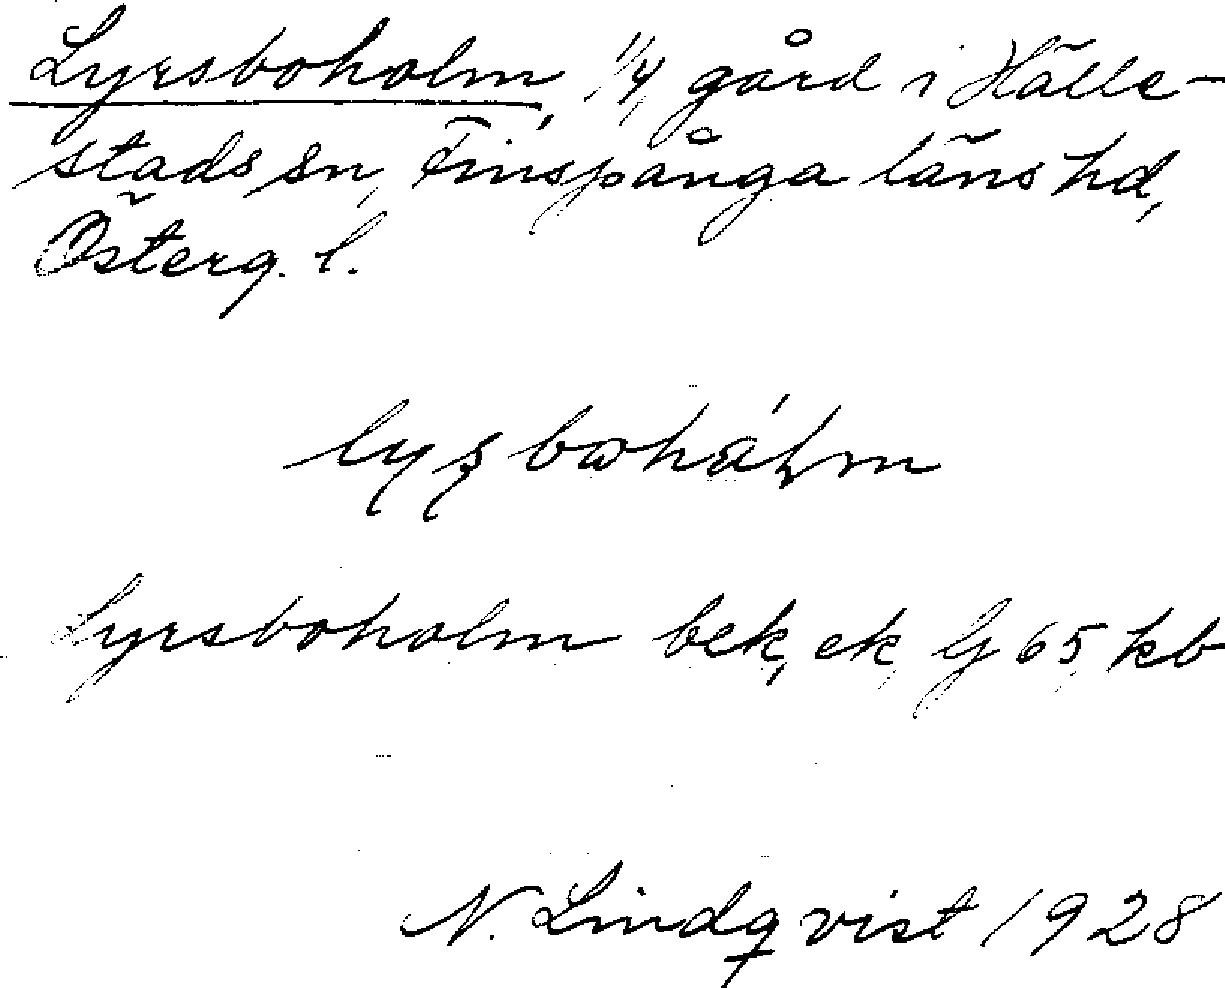 Lyrsboholm, 1/4 gård i Hälle-
stads sn, Finspånga läns hd,
Österg. l.
Lyrsboholm bek, ek, G 65, kb
N. Lindqvist 1928